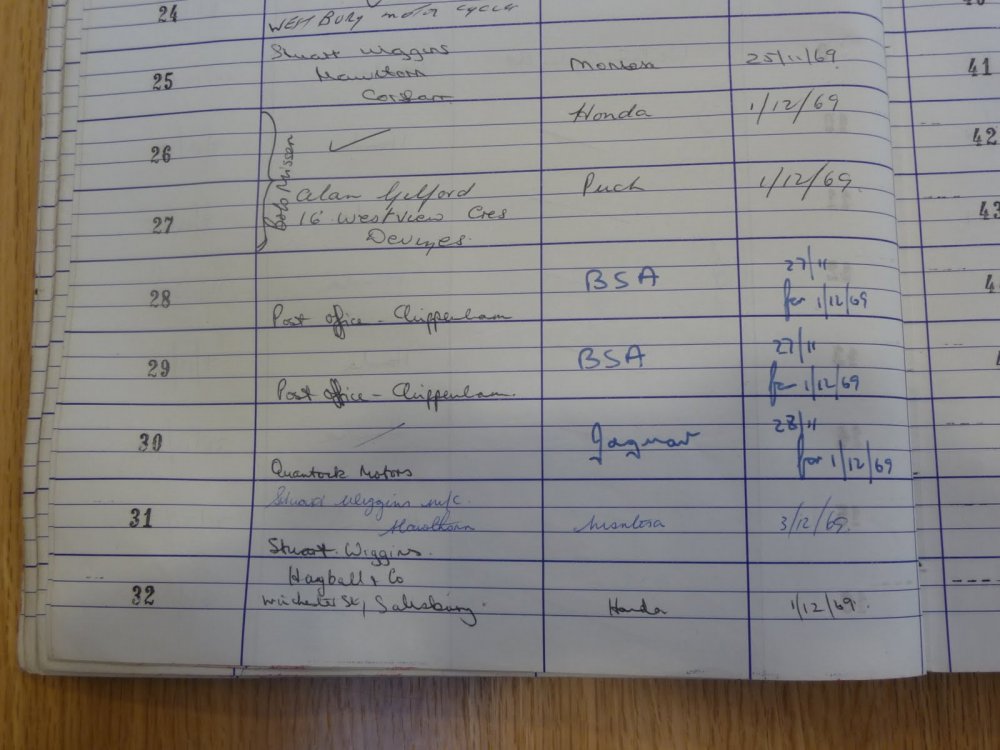 24
WESTBURY motor cycles
Stuart Wiggins
25 Hawthorn Montesa 25/11/69
Corsham
Honda 1/12/69
26
Bob Nissen
Alan Gulford Puch 1/12/69
27 16 Westview Cres
Devizes.
BSA 27/11
28 for 1/12/69
Post office - Chippenham
BSA 27/11
29 for 1/12/69
Post office - Chippenham.
30 Jaguar 28/11
for 1/12/69
Quantock Motors
Stuart Wiggins m/c.
31 Hawthorn Montesa 3/12/69.
Stuart. Wiggins.
Hagball & Co
32 Winchester St, Salisbury. Honda 1/12/69.
41
42
43